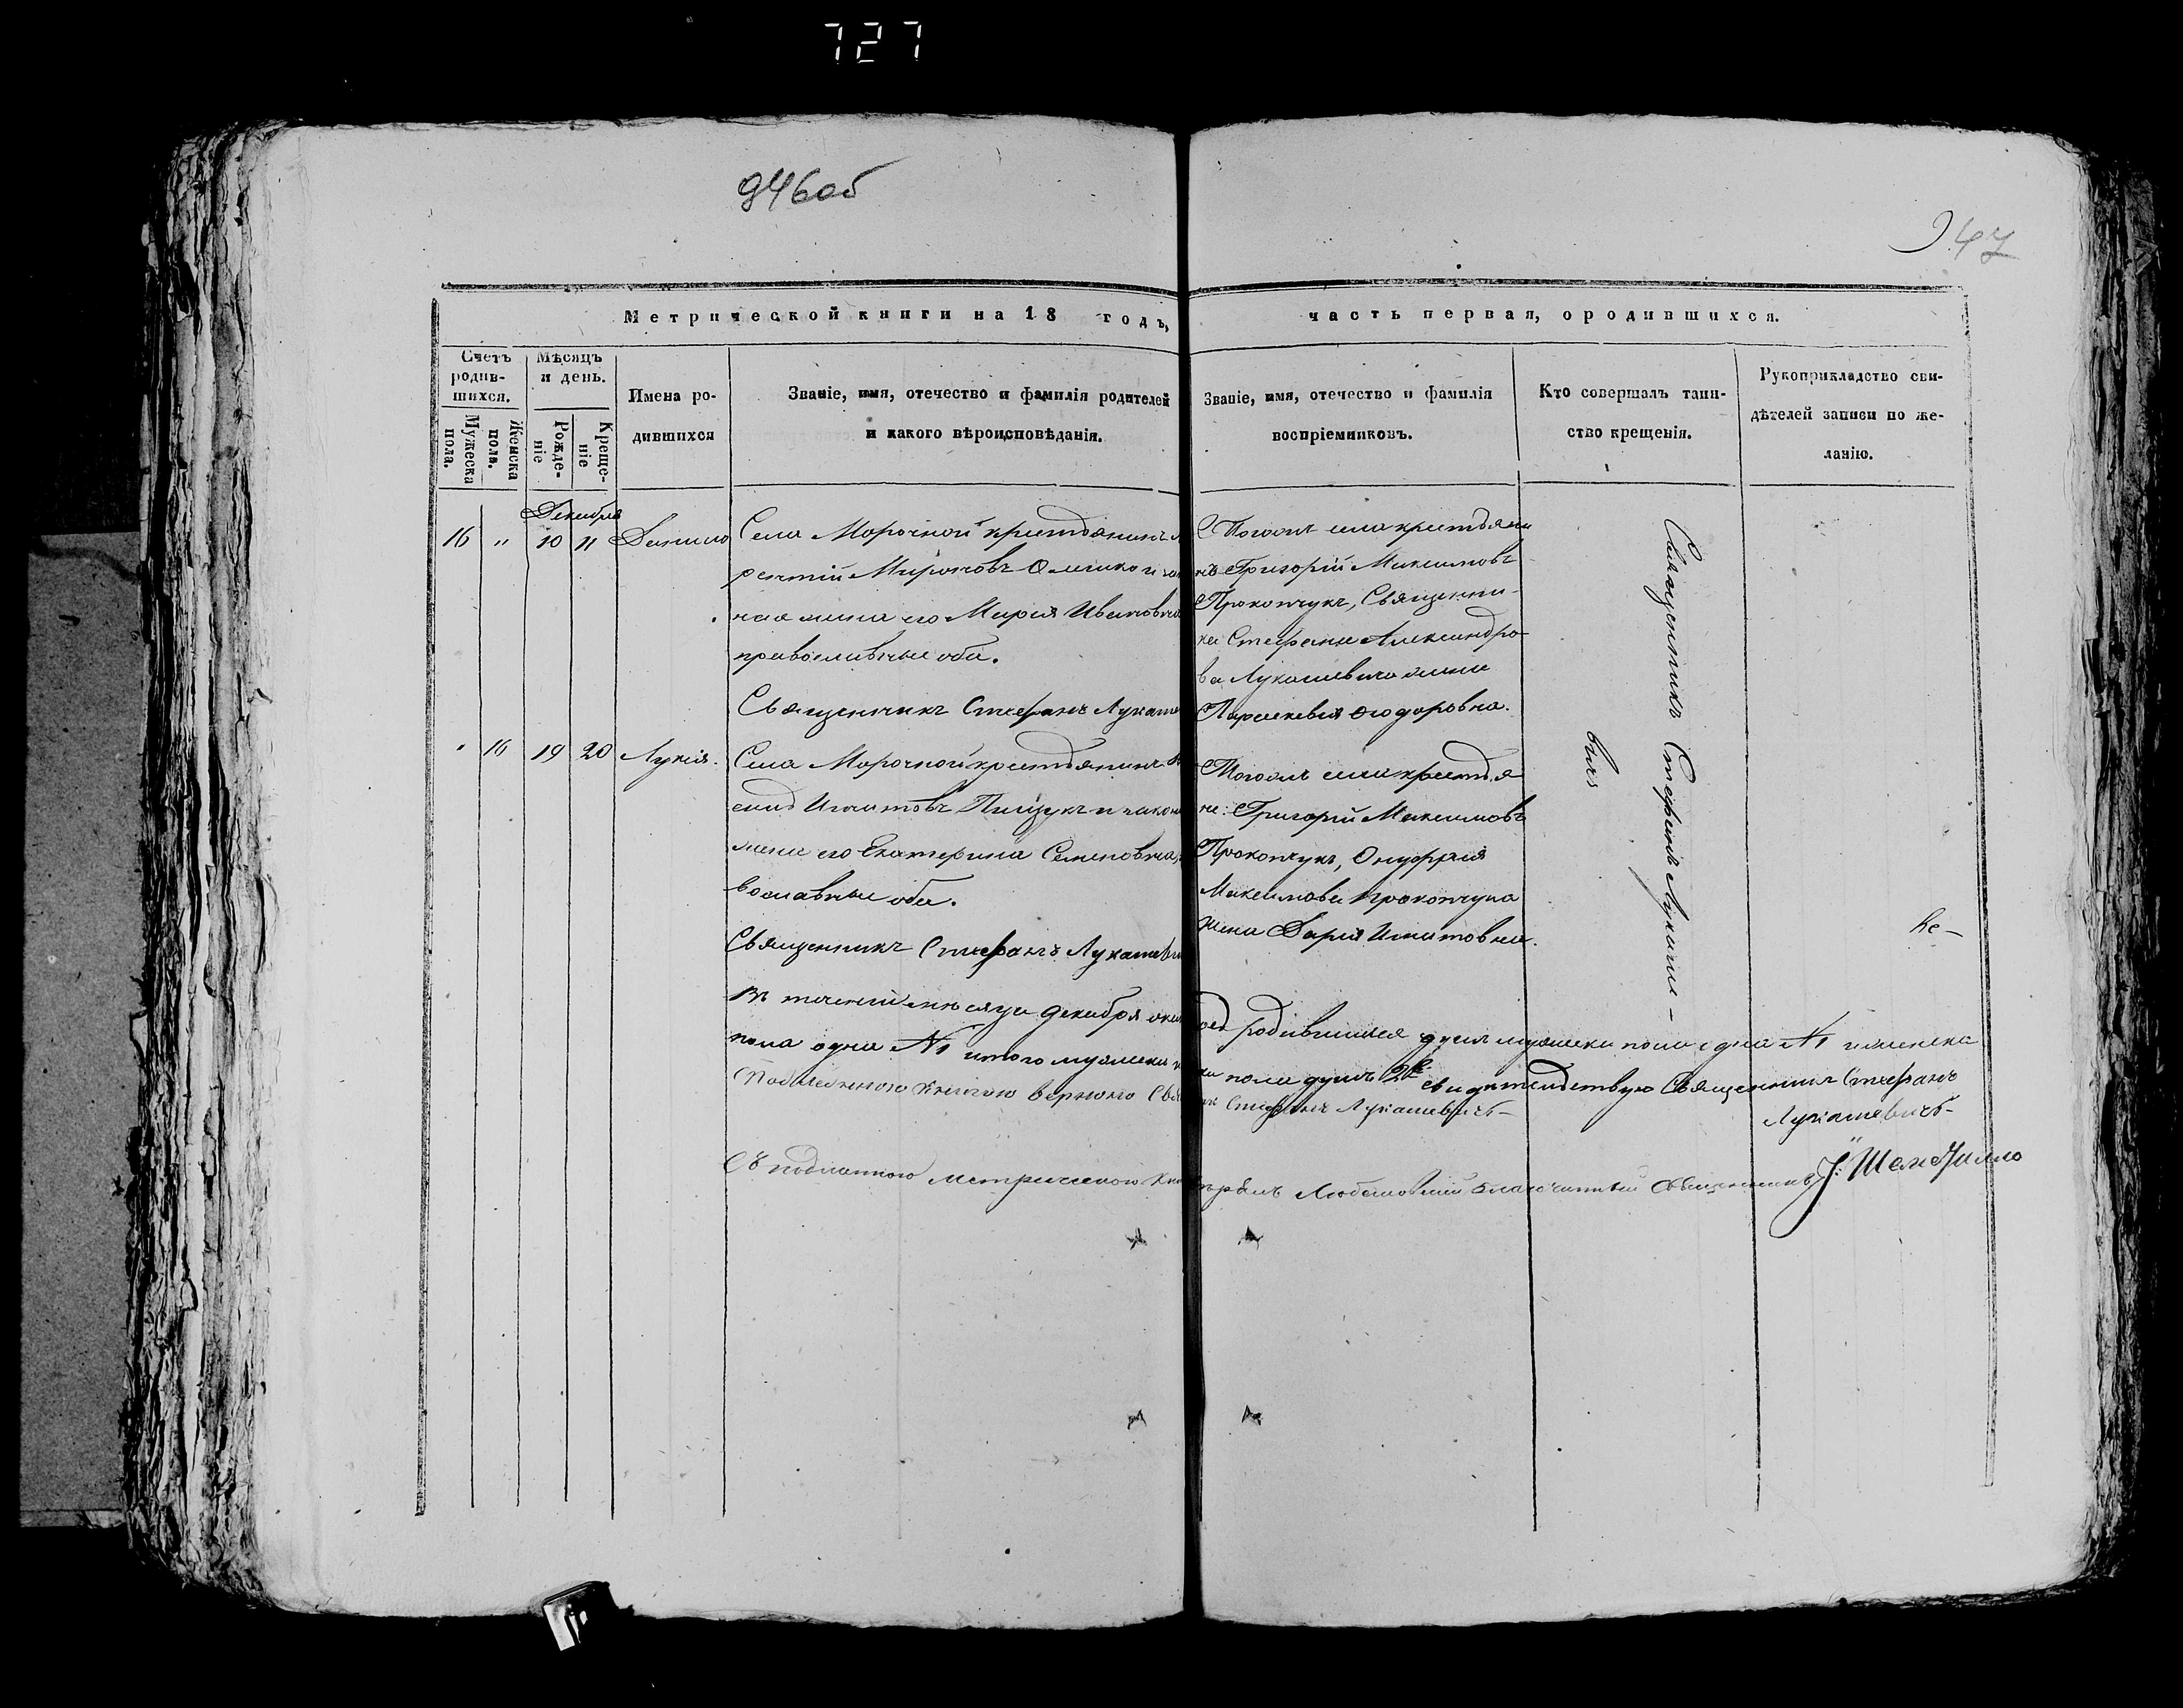 727
946об
947
Метрической книги на 18 годъ,
часть первая, о родившихся.
Счетъ родив-шихся.
Мужеска пола.
Женска пола.
Мѣсяцъ и день.
Рожде-ніе
Креще-ніе
Имена ро-
дившихся
Званіе, имя, отечество и фамилія родителей
и какого вѣроисповѣданія.
Званіе, имя, отечество и фамилія
воспріемниковъ.
Кто совершалъ таин-
ство крещенія.
Рукоприкладство сви-
дѣтелей записи по же-
ланію.
Декабря
16 " 10 11 Данило
Села Морочной крестьянинъ
рентій Мироновъ и
ная жена его Марія Ивановна
православные оба.
Священникъ Стефанъ Лукаше
Тогожъ села крестьяни
нъ Григорій Максимовъ
Прокопчукъ, Священни-
ка Стефана Александро-
ва Лукашевича жена
Параскевія Ѳеодоровна.
Священникъ Стефанъ Лукаше-
вичъ
" 16 19 20 Лукія.
Села Морочной крестьянинъ
Игнатовъ Пищукъ и закон
жена его Екатерина Семеновна,
вославные оба.
Священникъ Стефанъ Лукашеви
Тогожъ села крестья
не: Григорій Максимовъ
Прокопчукъ, Онуфрія
Максимова Прокопчука
жена Дарія Игнатовна.
Въ теченіи мѣсяца декабря родившихся душъ мужеска пола одна №1 и женска
пола одна №1 итого мужеска пола душъ 2 свидѣтельствую Священникъ Стефанъ
Лукашевичъ
Съ подлинною книгою вѣрно Стефанъ Лукашевичъ
Съ подлинною метрическою Любешовскій Благочинный Священникъ